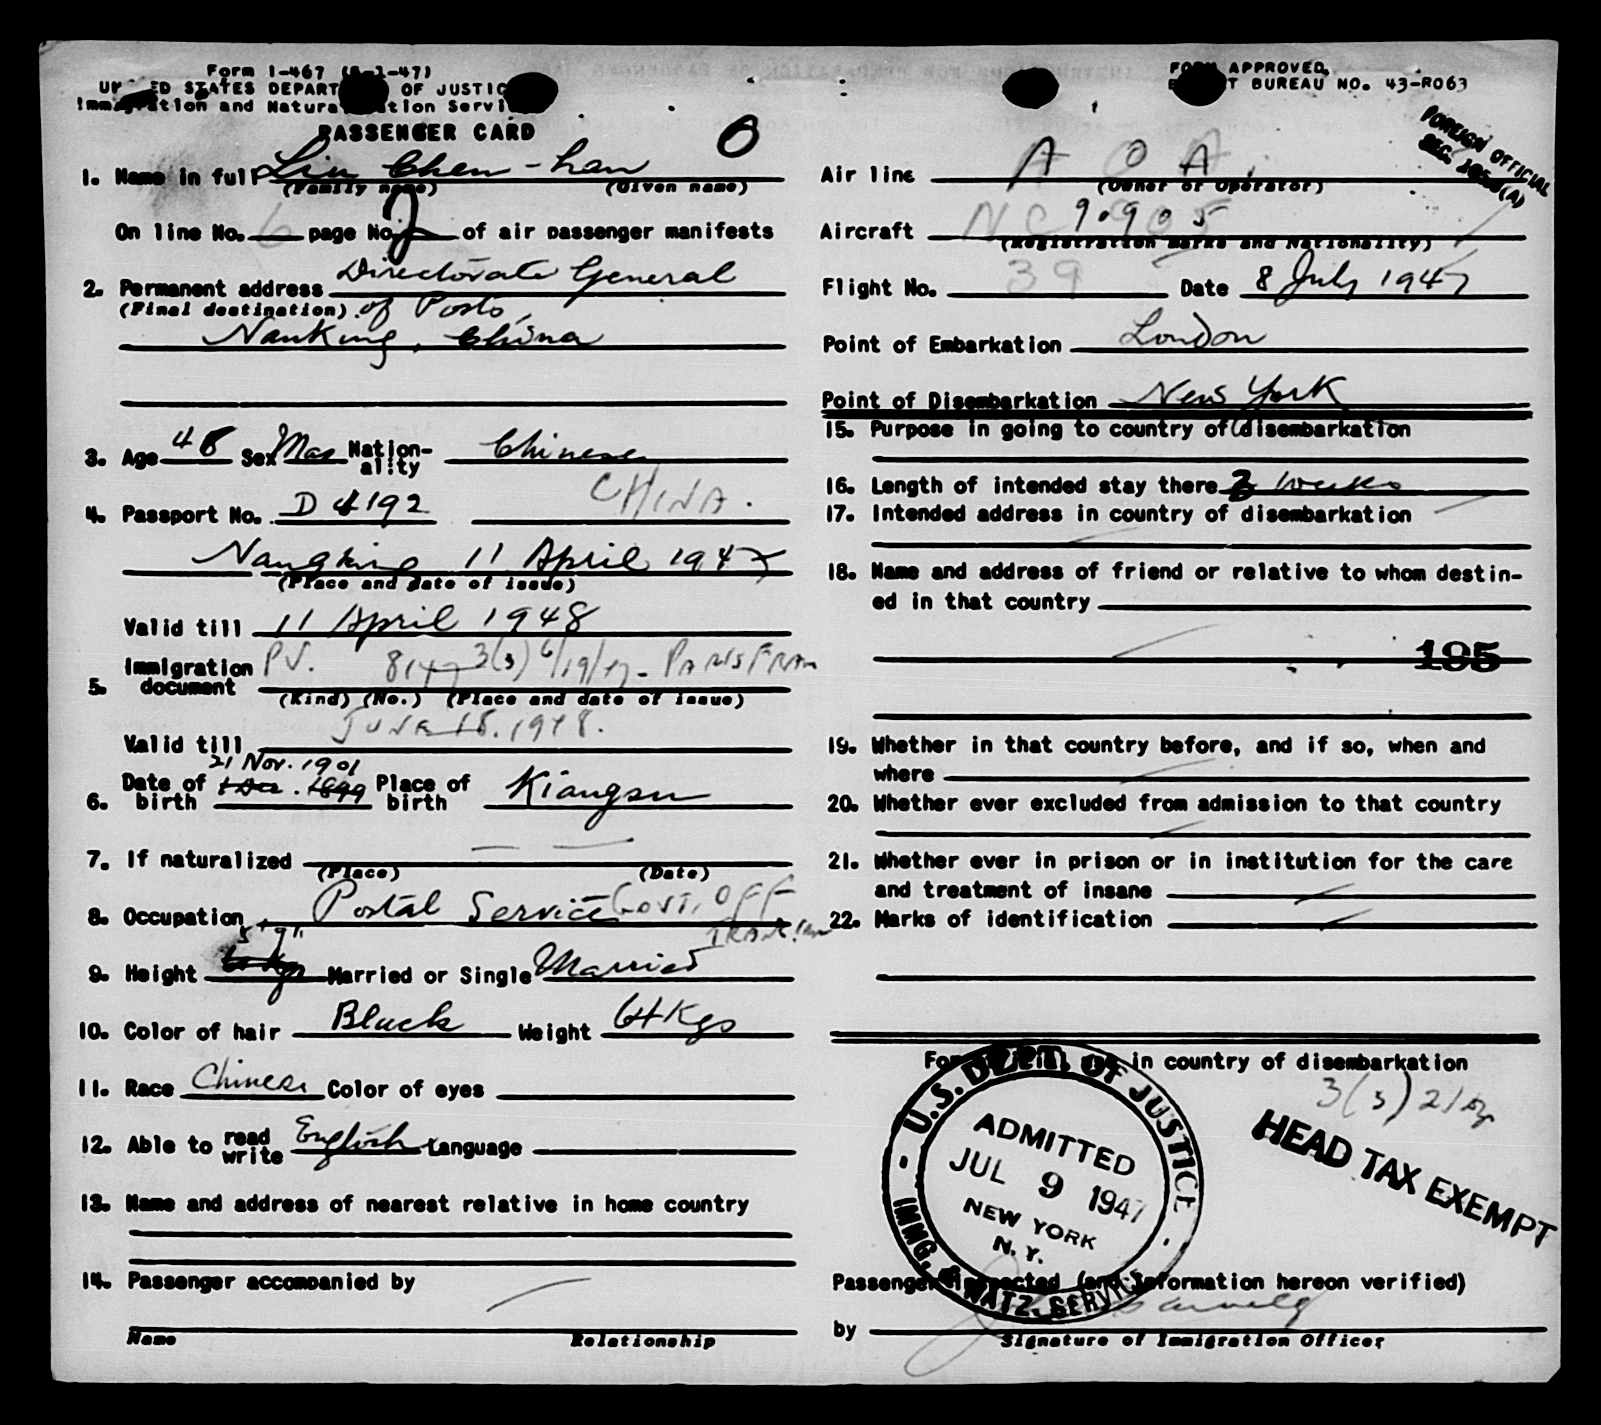 Form I-467 (8-1-47)
UNITED STATES DEPARTMENT OF JUSTICE
Immigration and Naturalization Service
PASSENGER CARD
O
1. Name in full Liu Chen-han
(Family name) (Given name)
On line No. 6 page No. 2 of air passenger manifests
2. Permanent address Directorate General
(Final destination) of Posts,
Nanking, China
3. Age 48 Sex Mas Nation-ality Chinese
CHINA.
4. Passport No. D 4192
Nangking 11 April 1947
(Place and date of issue)
Valid till 11 April 1948
5. Immigration document P.V. 8147 3(3) 6/19/47 - PARIS FRAN
(Kind) (No.) (Place and date of issue)
Valid till JUNE 18. 1948.
21 Nov. 1901
6. Date of birth 1 Dec. 1899 Place of birth Kiangsu
7. If naturalized — —
(Place) (Date)
8. Occupation Postal Service Govt. OFF
5'9"
9. Height Married or Single Married
10. Color of hair Black Weight 64 Kgs
11. Race Chinese Color of eyes
12. Able to read write English Language
13. Name and address of nearest relative in home country
14. Passenger accompanied by
Name Relationship
FORM APPROVED,
BUDGET BUREAU NO. 43-R063
FOREIGN OFFICIAL
Air line A O A.
(Owner or Operator)
Aircraft NC 90905
(Registration marks and Nationality)
Flight No. 39 Date 8 July 1947
Point of Embarkation London
Point of Disembarkation New York
15. Purpose in going to country of disembarkation
16. Length of intended stay there 3 weeks
17. Intended address in country of disembarkation
18. Name and address of friend or relative to whom destin-
ed in that country
195
19. Whether in that country before, and if so, when and
where
20. Whether ever excluded from admission to that country
21. Whether ever in prison or in institution for the care
and treatment of insane
22. Marks of identification
For official use in country of disembarkation
3(3)
HEAD TAX EXEMPT
U.S. DEPT. OF JUSTICE
ADMITTED
JUL 9 1947
NEW YORK
N.Y.
IMMG. & NATZ. SERVICE
Passenger inspected (and information hereon verified)
by
Signature of Immigration Officer